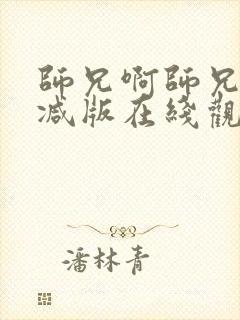 師兄啊師兄
減版在綫觀
潘林青